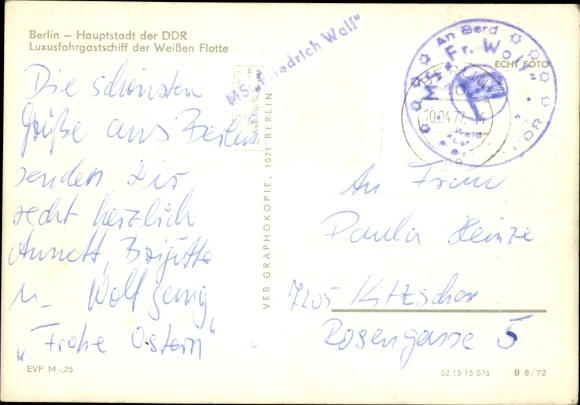 Berlin – Hauptstadt der DDR
Luxusfahrgastschiff der Weißen Flotte
MS "Friedrich Wolf"
An Bord
MS "Fr. Wolf"
ECHT FOTO
10.04.77
Die schönsten
Grüße aus Berlin
senden Dir
recht herzlich
Annett, Brigitte
u. Wolfgang
"Frohe Ostern"
An Frau
Paula Heinze
7205 Kitzscher
Rosengasse 5
VEB GRAPHOKOPIE, 1071 BERLIN
EVP M -,25
02 15 15 076 B 8/72